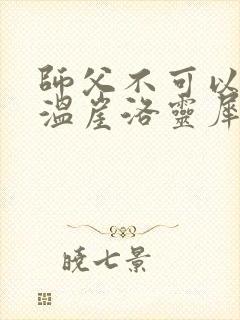 師父不可以
溫崖洛靈犀
曉七景